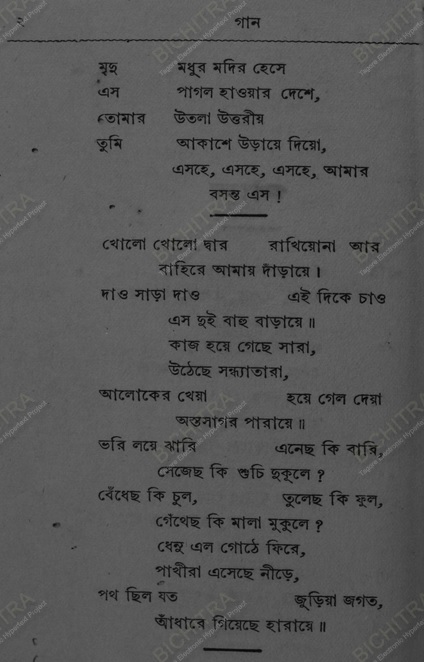 ২ গান
মৃদু মধুর মদির হেসে
এস পাগল হাওয়ার দেশে,
তোমার উতলা উত্তরীয়
তুমি আকাশে উড়ায়ে দিয়ো,
এসহে, এসহে, এসহে, আমার
বসন্ত এস !
খোলো খোলো দ্বার রাখিয়োনা আর
বাহিরে আমায় দাঁড়ায়ে ।
দাও সাড়া দাও এই দিকে চাও
এস দুই বাহু বাড়ায়ে ॥
কাজ হয়ে গেছে সারা,
উঠেছে সন্ধ্যাতারা,
আলোকের খেয়া হয়ে গেল দেয়া
অস্তসাগর পারায়ে ॥
ভরি লয়ে ঝারি এনেছ কি বারি,
সেজেছ কি শুচি দুকূলে ?
বেঁধেছ কি চুল, তুলেছ কি ফুল,
গেঁথেছ কি মালা মুকুলে ?
ধেনু এল গোঠে ফিরে,
পাখীরা এসেছে নীড়ে,
পথ ছিল যত জুড়িয়া জগত,
আঁধারে গিয়েছে হারায়ে ॥
BICHITRA